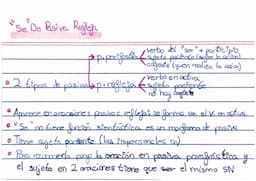 "Se" De Pasiva Refleja
verbo del "ser" + participio
p. perifrástica sujeto paciente (sufre la acción)
cagente (quien realiza la acción)
• 2 tipos de pasiva
verbo en activa
p. refleja sujeto paciente
no hay cagente
• Aparece en oraciones pasivas reflejas se forma con el V. en activa
• "Se" no tiene función sintáctica es un morfema de pasiva
• Tiene sujeto paciente (las impersonales no)
• Para comprobar pongo la oración en pasiva perifrástica y
el sujeto en 2 oraciones tiene que ser el mismo SN